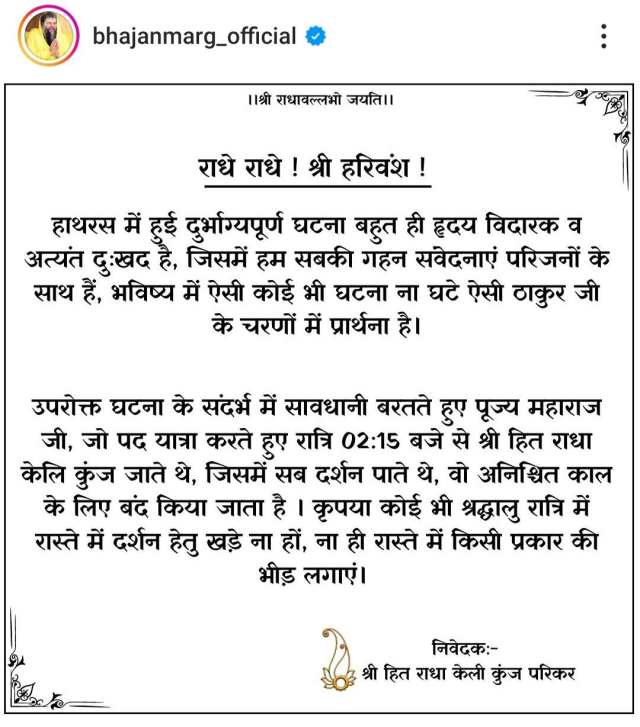 bhajanmarg_official
।।श्री राधावल्लभो जयति।।
राधे राधे ! श्री हरिवंश !
हाथरस में हुई दुर्भाग्यपूर्ण घटना बहुत ही हृदय विदारक व
अत्यंत दुःखद है, जिसमें हम सबकी गहन संवेदनाएं परिजनों के
साथ हैं, भविष्य में ऐसी कोई भी घटना ना घटे ऐसी ठाकुर जी
के चरणों में प्रार्थना है।
उपरोक्त घटना के संदर्भ में सावधानी बरतते हुए पूज्य महाराज
जी, जो पद यात्रा करते हुए रात्रि 02:15 बजे से श्री हित राधा
केलि कुंज जाते थे, जिसमें सब दर्शन पाते थे, वो अनिश्चित काल
के लिए बंद किया जाता है । कृपया कोई भी श्रद्धालु रात्रि में
रास्ते में दर्शन हेतु खड़े ना हों, ना ही रास्ते में किसी प्रकार की
भीड़ लगाएं।
निवेदक:-
श्री हित राधा केली कुंज परिकर